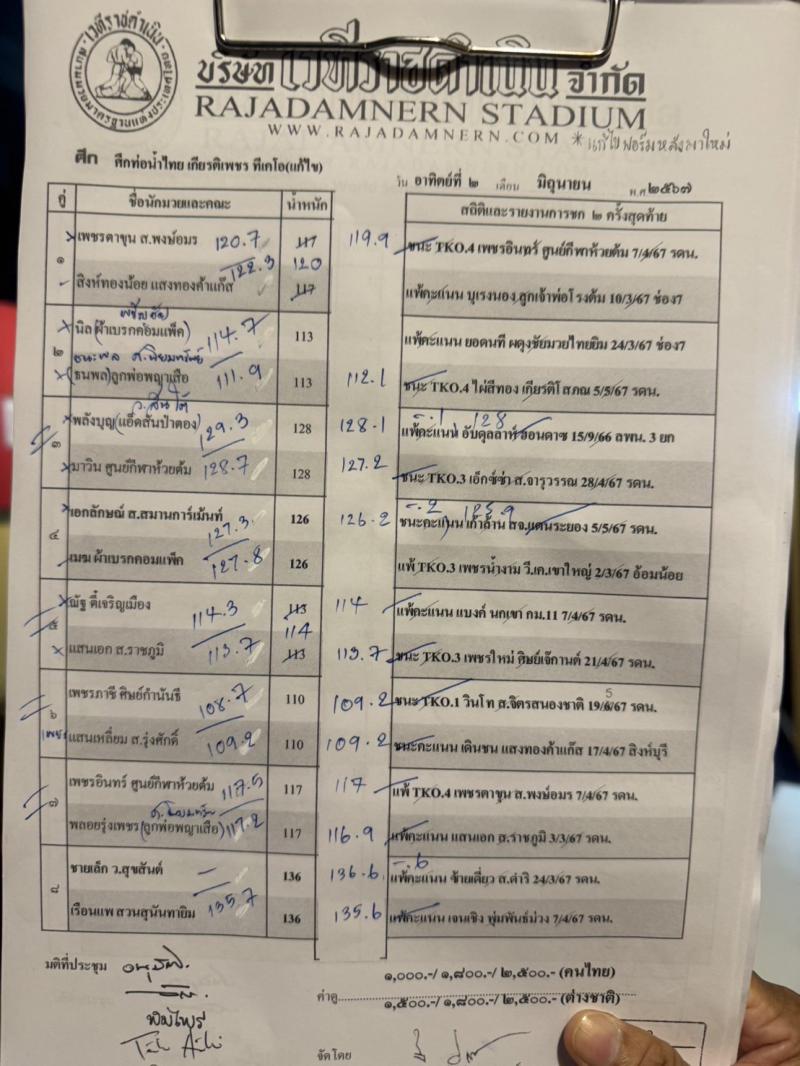 เวทีราชดำเนิน
บริษัท เวทีราชดำเนิน จำกัด
RAJADAMNERN STADIUM
WWW.RAJADAMNERN.COM *แก้ไขฟอร์มหลังมาใหม่
ศึก ศึกท่อน้ำไทย เกียรติเพชร ทีเคโอ(แก้ไข)
วัน อาทิตย์ที่ ๒ เดือน มิถุนายน พ.ศ ๒๕๖๗
คู่ ชื่อนักมวยและคณะ น้ำหนัก สถิติและรายงานการชก ๒ ครั้งสุดท้าย
๑ เพชรดาขุน ส.พงษ์อมร 120.7 117 119.9 ชนะ TKO.4 เพชรอินทร์ ศูนย์กีฬาห้วยต้ม 7/4/67 รดน.
สิงห์ทองน้อย แสงทองค้าแก๊ส 122.3 120 117 แพ้คะแนน บุเรงนอง ลูกเจ้าพ่อโรงต้ม 10/3/67 ช่อง7
๒ นิล(ผ้าเบรกคอมแพ็ค) 114.7 113 แพ้คะแนน ยอดนที ผดุงชัยมวยไทยยิม 24/3/67 ช่อง7
(ธนพล)ลูกพ่อพญาเสือ 111.9 113 112.1 ชนะ TKO.4 ไผ่สีทอง เกียรติโสภณ 5/5/67 รดน.
๓ พลังบุญ(แอ็ดสันป่าตอง) 129.3 128 128.1 แพ้คะแนน อับดุลลาห์ ฮอนดาซ 15/9/66 ลพน. 3 ยก -.1 128
มาวิน ศูนย์กีฬาห้วยต้ม 128.7 128 127.2 ชนะ TKO.3 เอ็กซ์ซ่า ส.จารุวรรณ 28/4/67 รดน.
๔ เอกลักษณ์ ส.สมานการ์เม้นท์ 127.3 126 126.2 ชนะคะแนน เก้าล้าน สจ.แดนระยอง 5/5/67 รดน. -.2 125.9
เมฆ ผ้าเบรกคอมแพ็ค 127.8 126 แพ้ TKO.3 เพชรน้ำงาม วี.เค.เขาใหญ่ 2/3/67 อ้อมน้อย
๕ ณัฐ ตี๋เจริญเมือง 114.3 113 114 114 แพ้คะแนน แบงค์ นกเขา กม.11 7/4/67 รดน.
แสนเอก ส.ราชภูมิ 113.7 113 113.7 ชนะ TKO.3 เพชรใหม่ ศิษย์เจ๊กานต์ 21/4/67 รดน.
๖ เพชรภาซี ศิษย์กำนันธี 108.7 110 109.2 ชนะ TKO.1 วินโท ส.จิตรสนองชาติ 19/6/67 รดน. 5
เพชร แสนเหลี่ยม ส.รุ่งศักดิ์ 109.2 110 109.2 ชนะคะแนน เดินชน แสงทองค้าแก๊ส 17/4/67 สิงห์บุรี
๗ เพชรอินทร์ ศูนย์กีฬาห้วยต้ม 117.5 117 117 แพ้ TKO.4 เพชรดาขุน ส.พงษ์อมร 7/4/67 รดน.
พลอยรุ่งเพชร(ลูกพ่อพญาเสือ) 117.2 117 116.9 แพ้คะแนน แสนเอก ส.ราชภูมิ 3/3/67 รดน.
๘ ชายเล็ก ว.สุขสันต์ - 136 136.6 แพ้คะแนน ซ้ายเดี่ยว ส.ดำริ 24/3/67 รดน. -.6
เรือนแพ สวนสุนันทายิม 135.7 136 135.6 แพ้คะแนน เจนเชิง พุ่มพันธ์ม่วง 7/4/67 รดน.
มติที่ประชุม
๑,๐๐๐.-/ ๑,๘๐๐.-/ ๒,๕๐๐.- (คนไทย)
ค่าดู
๑,๕๐๐.-/ ๑,๘๐๐.-/ ๒,๕๐๐.- (ต่างชาติ)
พิมพ์ไพรี
จัดโดย